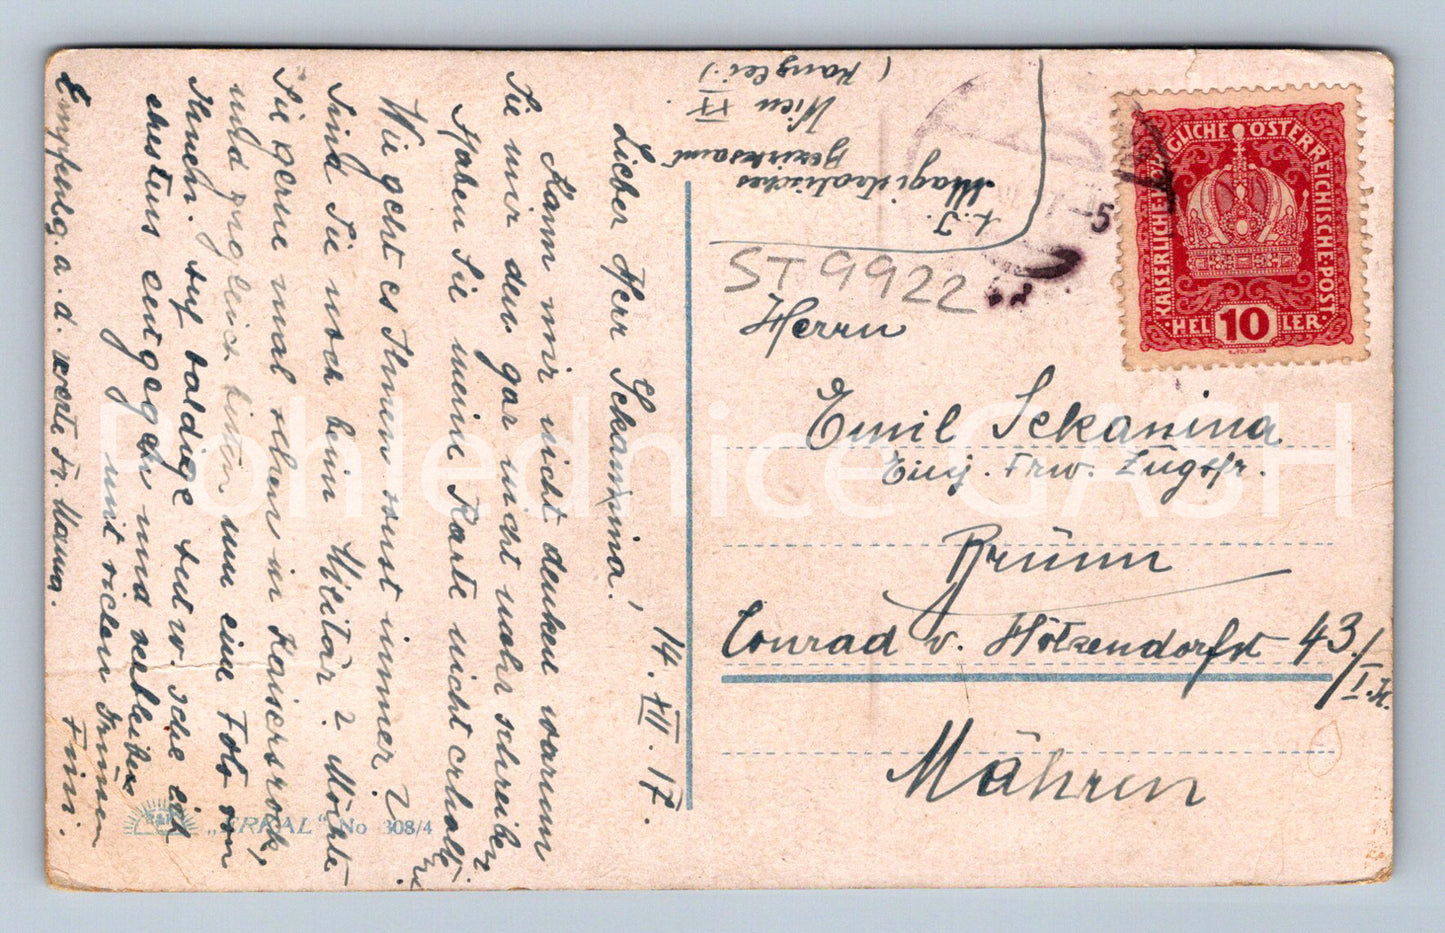 14. XII. 17.
Lieber Herr Sekannina!
Kann mir nicht denken warum
Sie mir den gar nicht mehr schreiben
Haben Sie meine Karte nicht erhalten
Wie geht es Ihnen sonst immer?
Sind Sie noch beim Militär? Möchte
Sie gerne mal sehen in Kaisersrock,
und zugleich bitten um eine Foto von
Ihnen. Auf baldige Antw. sehe ich
ehestens entgegen und verbleibe
mit vielen Grüßen
Fini.
Empfehlg. a. d. werte Fr. Mama.
k. k.
Magistratisches
Bezirksamt
Wien XX
(Kanzlei)
ST 9922
Herrn
Emil Sekanina
Einj. Frw. Zugsfr.
Brünn
Conrad v. Hötzendorfst 43/
I. St.
Mähren
KAISERLICHE KÖNIGLICHE ÖSTERREICHISCHE POST
HELLER 10
"ERKAL" No 308/4
Pohlednice GASH